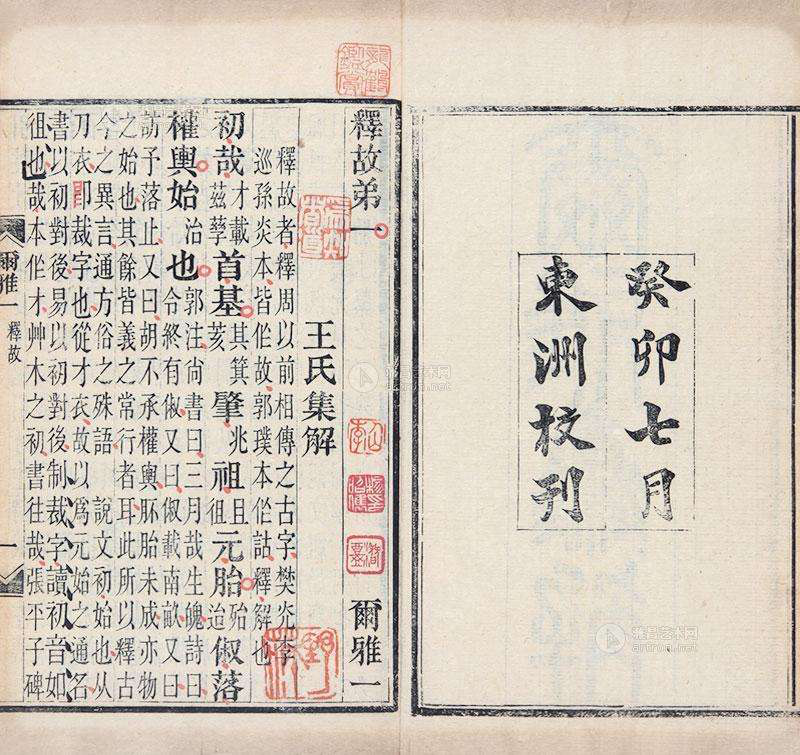 癸卯七月
東洲校刊
釋故弟一 爾雅一
王氏集解
釋故者釋周以前相傳之古字樊光李
巡孫炎本皆作故郭璞本作詁釋解也
初哉才載茲孼首基其箕亥肇兆祖且徂元胎殆迨俶落
權輿始治也郭注尚書曰三月哉生魄詩曰
令終有俶又曰俶載南畝又曰
訪予落止又曰胡不承權輿胚胎未成亦物
之始也其餘皆義之常行者耳此所以釋古
今之異言通方俗之殊語 說文初始也从
刀衣卽裁字也從才衣故以爲元始之通名
書以初對後易以初對後制裁字讀初音如
徂也哉本作才艸木之初書往哉張平子碑
爾雅一 釋故 一
雅昌艺术网
artron.net